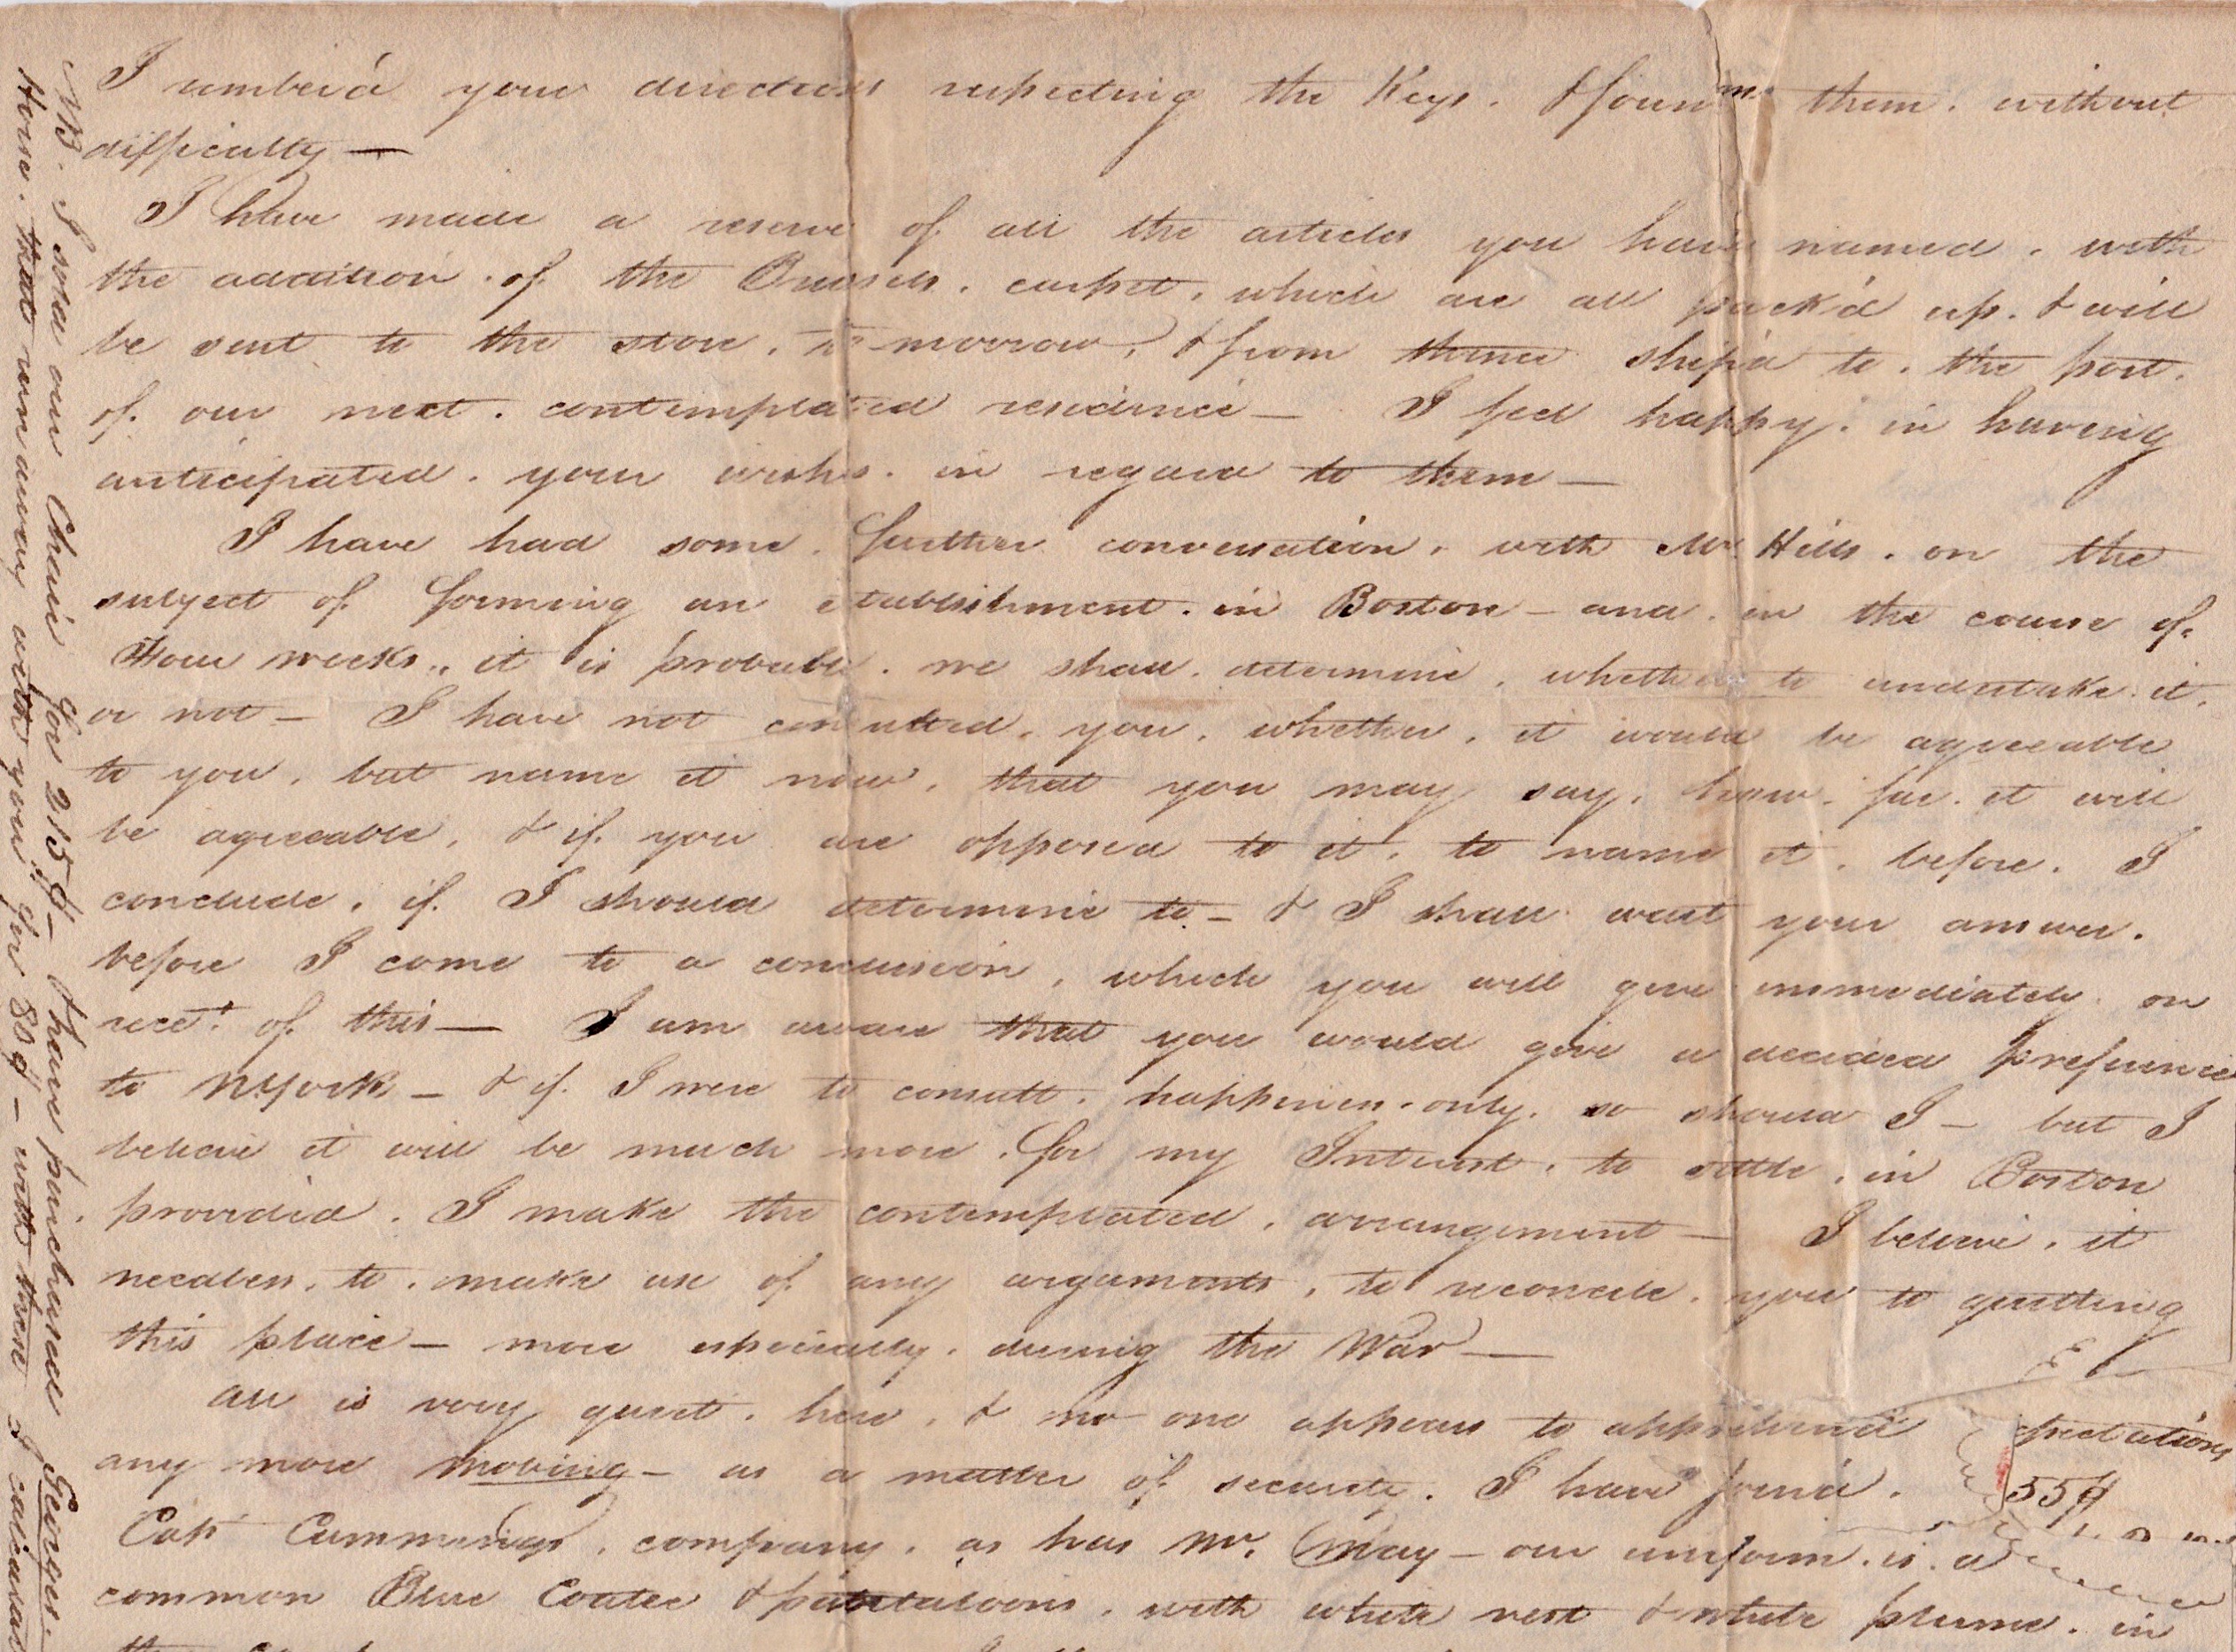 I umber'd your directions respecting the Keys. & foun them. without
difficulty —
I have made a reserve of all the articles you have named. with
the addition. of the Brussels. carpet, which are all pack'd up. & will
be sent to the store. to-morrow, & from thence ship'd to. the port.
of. our next. contemplated residence — I feel happy. in having
anticipated. your wishes. in regard to them —
I have had some. further conversation. with Mr Hills. on the
subject of. forming an establishment. in Boston — and. in the course of.
Four weeks., it is probable. we shall. determine. whether to undertake. it.
or not — I have not consulted. you. whether. it would be agreeable
to you. but name it now. that you may say. how. far. it will
be agreeable. & if. you are opposed to it. to name it. before. I
conclude. if. I should determine to — & I shall wait your answer.
before I come to a conclusion. which you will give immediately on
recet. of. this — I am aware that you would give a decided preference
to N.York — & if. I were to consult. happiness. only. so should I — but I
believe it will be much more. for my Interest. to settle. in Boston
provided. I make the contemplated. arrangement — I believe. it
needless. to. make use of any arguments. to reconcile. you to quitting
this place — more especially. during the War —
All is very quiet. here. & no one appears to apprehend
any more moving — as a matter of security. I have join'd.
Capt Cummings. company. as has Mr. May — our uniform. is. a
common Blue Coatee & pantaloons. with white vest & white plume. in
pectations
55$
NB. I sold our Chaise for 215$ — & have purchased Georges.
Horse. that run away with you. for 80$ — with these I calculate